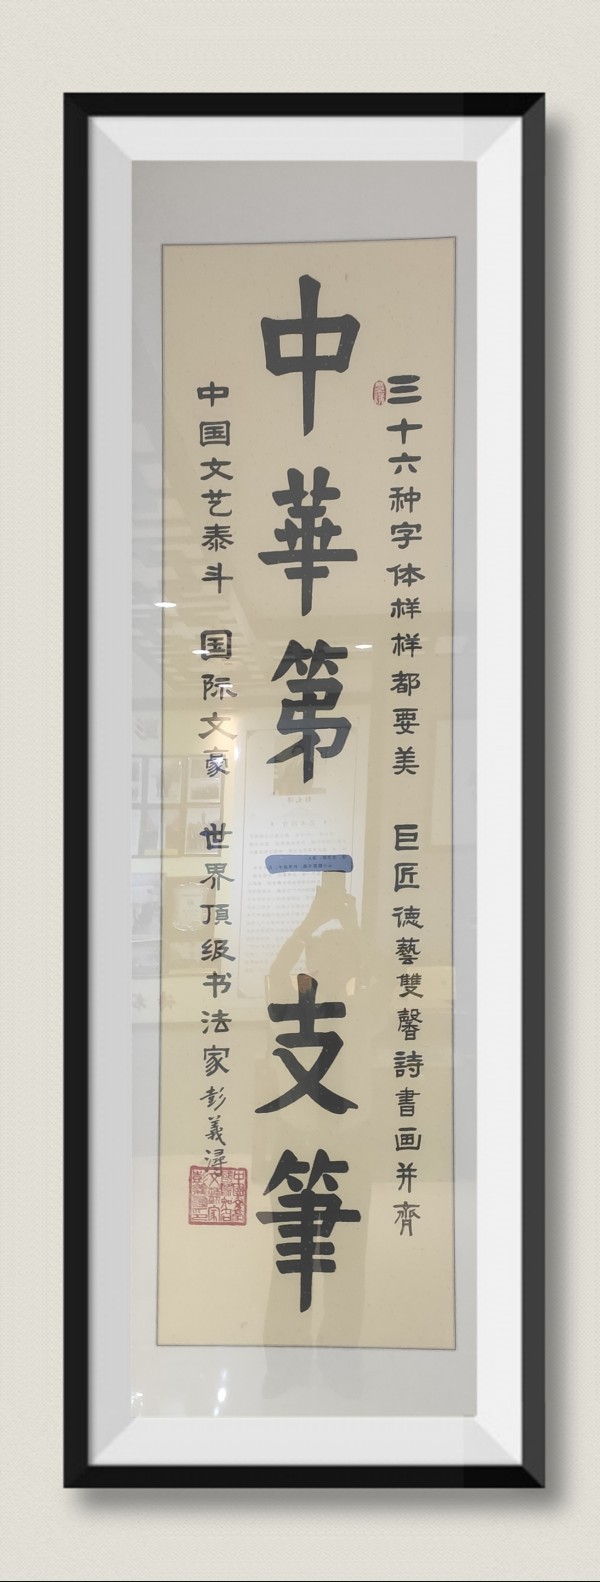 三十六种字体样样都要美 巨匠德藝雙馨詩書画并齊
中華第一支筆
中国文艺泰斗 国际文豪 世界頂级书法家 彭義潯